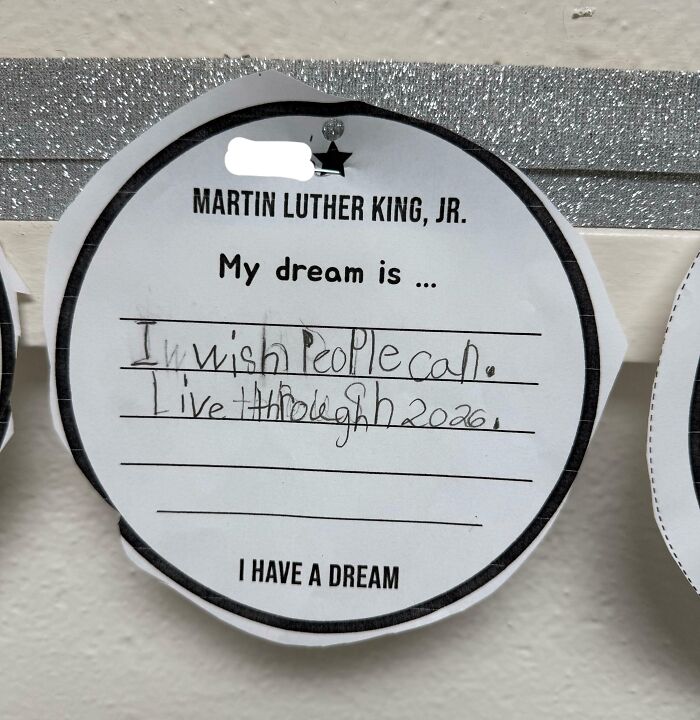 MARTIN LUTHER KING, JR.
My dream is ...
I wish People can.
Live through 2026.
I HAVE A DREAM